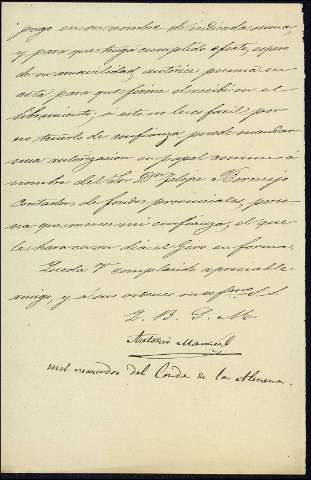 pago en su nombre de indicada suma,
y para que tenga cumplido efecto, espero
de su amabilidad, autorice persona en
esta para que firme el recibi en el
libramiento; si esto no le es facil por
no tenerlo de confianza puede mandar
una autorizacion en papel comun á
nombre del Sor. Dn. Felipe Hermejo
Contador de fondos provinciales, perso
na que merece mi confianza, el que
le hara cuzar dia el Giro en forma.
Queda V. complacido apreciable
amigo, y á sus ordenes su affmo. S. S.
Q. B. S. M.
Antonio
mil recuerdos del Conde de la Almena.